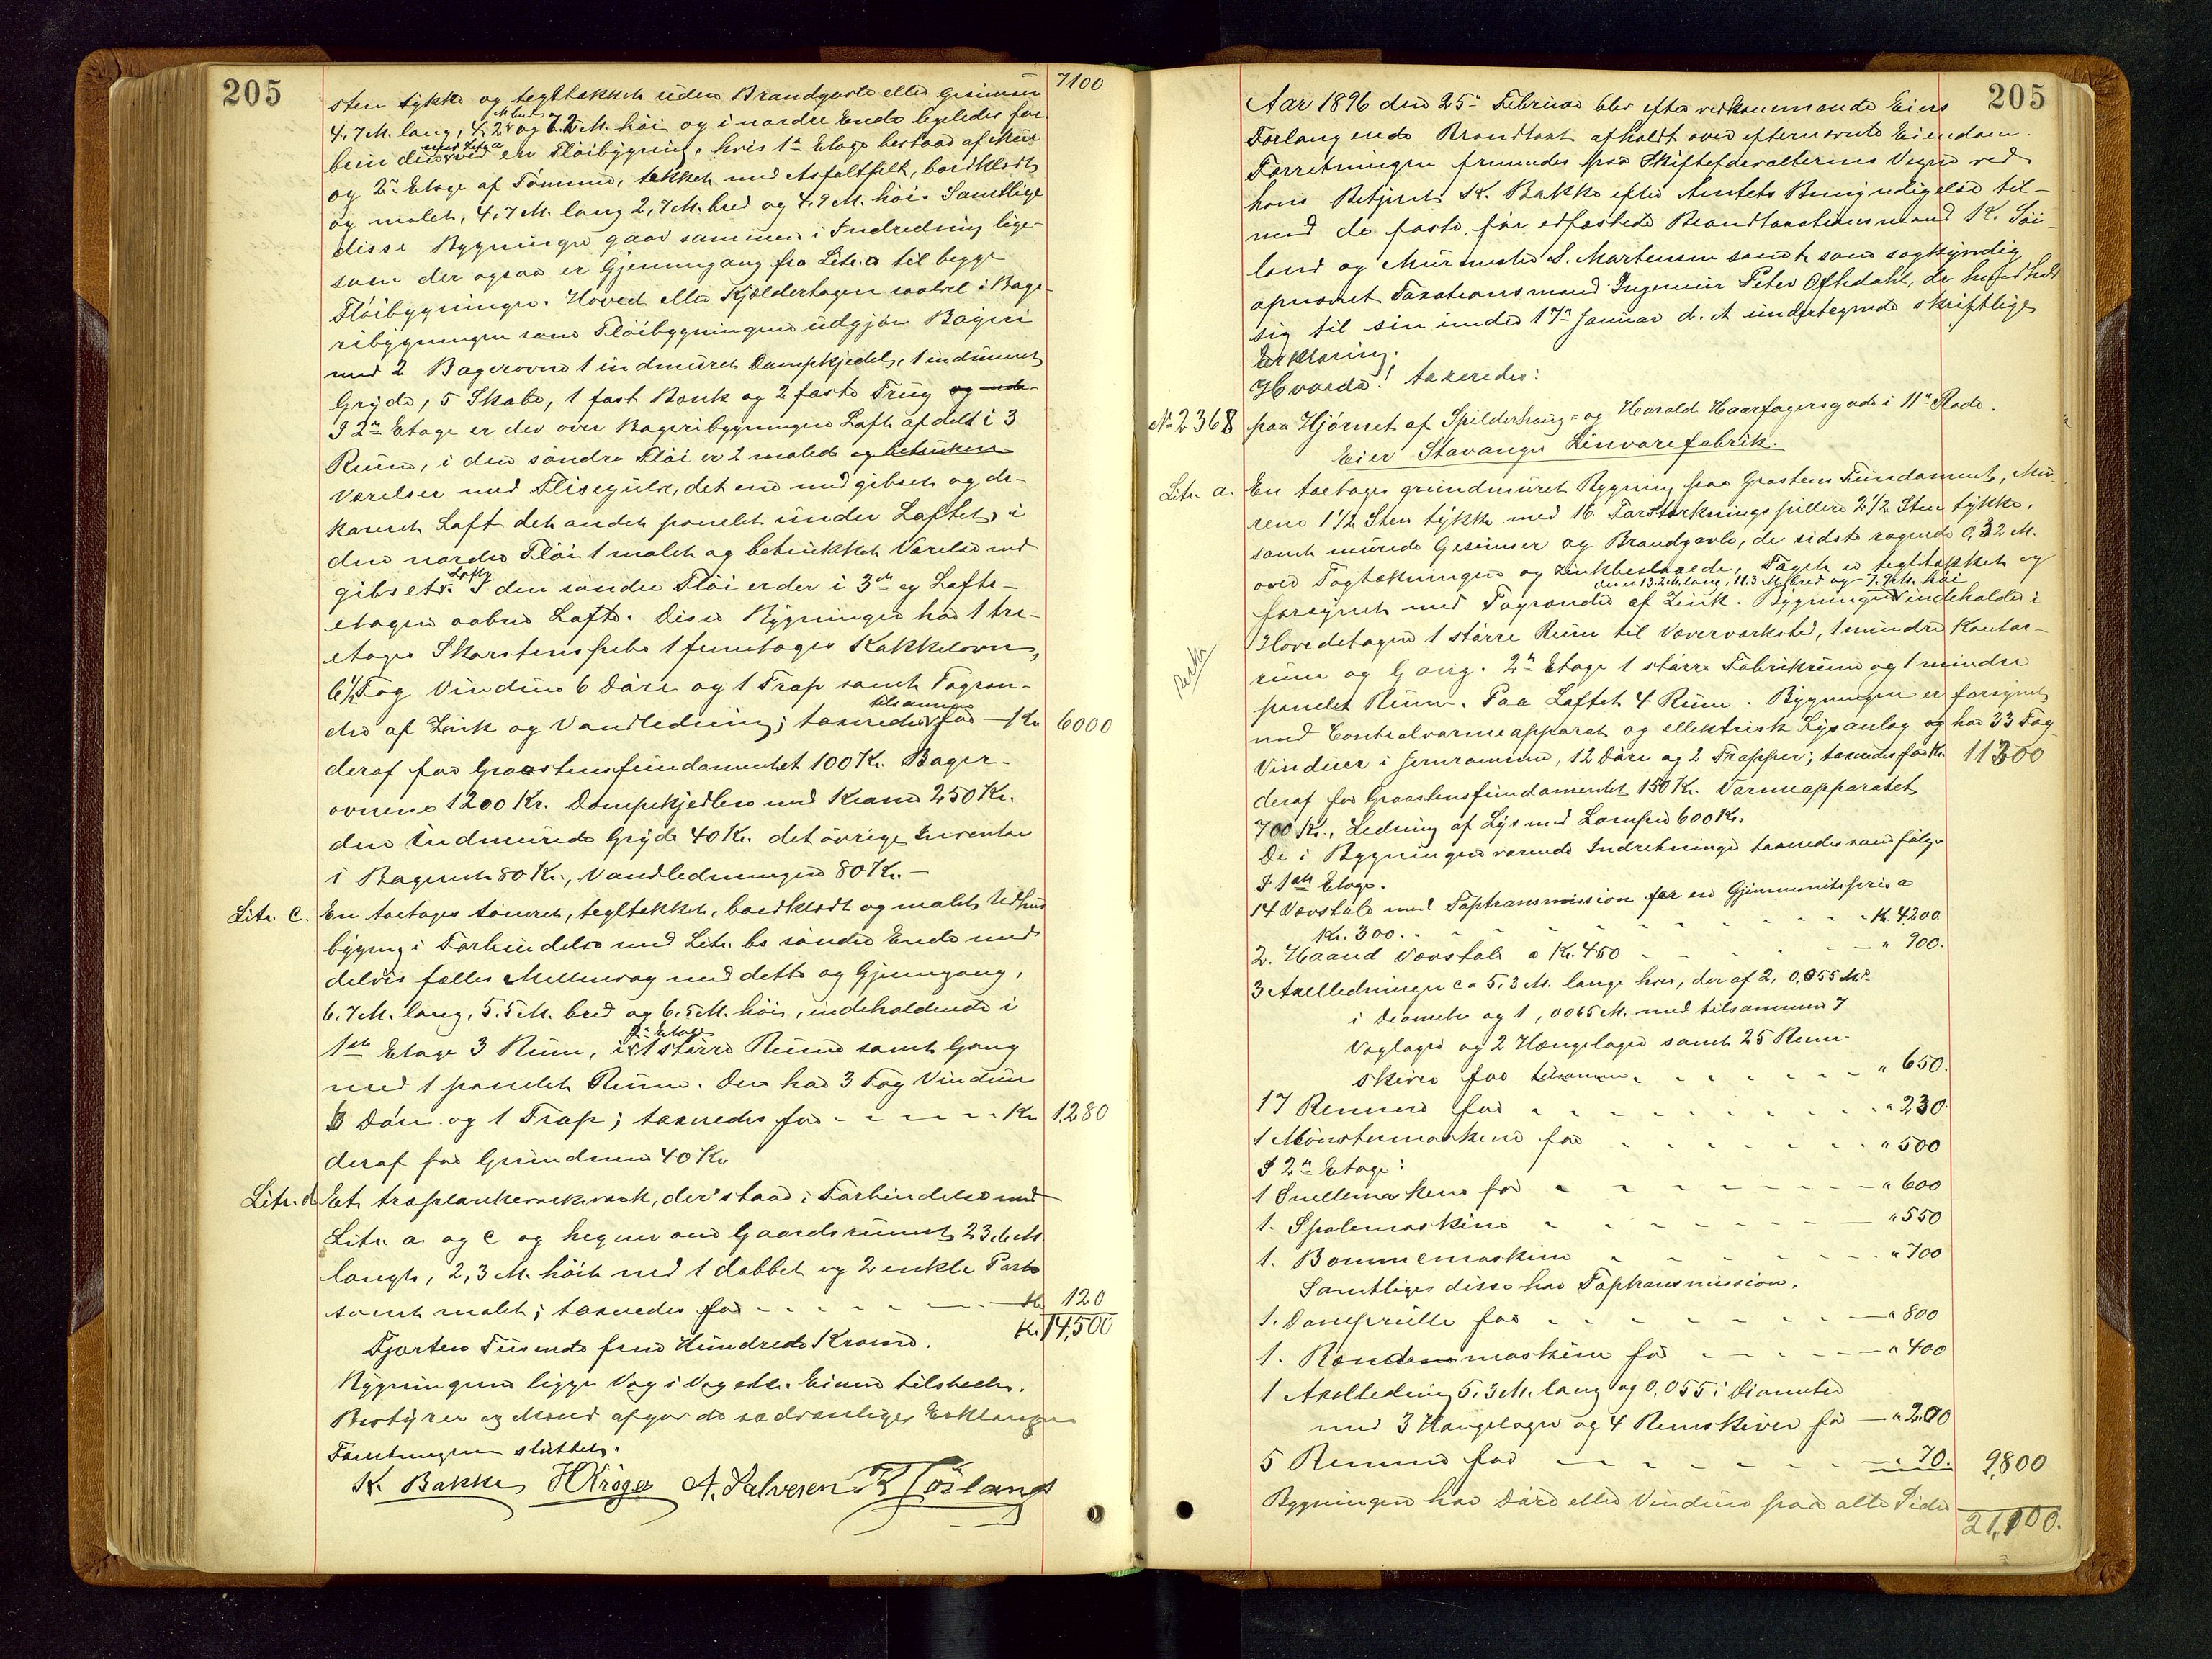 205
sten tykke og tegltækket uden Brandgavle eller Gesimser 7100
4,7 M. lang, 4,2 M bred og 7,2 M. høi og i nordre Ende ligeledes for-
bunden med Litr a ved en Fløibygning, hvis 1ste Etage bestaar af Mur
og 2den Etage af Tømmer, tækket med Asfaltfilt, bordklædt
og malet, 4,7 M. lang 2,7 M. bred og 4,9 M. høi. Samtlige
disse Bygninger gaar sammen i Indredning lige-
som der ogsaa er Gjennemgang fra Litr. a til begge
Fløibygninger. Hoved eller Kjælderetagen saavel i Bage-
ribygningen som Fløibygningerne udgjør Bageri
med 2 Bagerovne 1 indmuret Dampkjedel, 1 indmuret
Gryde, 5 Skabe, 1 fast Bænk og 2 faste Trug
I 2den Etage er der over Bageribygningen Loft afdelt i 3
Rum, i den søndre Fløi er 2 malede og betrukne
Værelser med Flisegulve, det ene med gibset og de-
koreret Loft det andet panelet under Loftet, i
den nordre Fløi 1 malet og betrukket Værelse med
gibset Loft. I den søndre Fløi er der i 3die og Lofts-
etagen aabne Lofte. Disse Bygninger har 1 tre-
etages Skorstenspibe 1 femetages Kakkelovn,
6½ Fag Vinduer 6 Døre og 1 Trap samt Tagren-
der af Zink og Vandledning; taxeredes tilsammen for — Kr 6000
deraf for Graastensfundamentet 100 Kr. Bager-
ovnene 1200 Kr. Dampkjedlen med Kraner 250 Kr.
den Indmurede Gryde 40 Kr. det øvrige Inventar
i Bageriet 80 Kr., Vandledningen 80 Kr. —
Litr. c. En toetages tømret, tegltækket, bordklædt og malet Udhus
bygning i Forbindelse med Litr. bs søndre Ende med
delvis fælles Mellemvæg med dette og Gjennemgang,
6.7 M. lang, 5.5 M. bred og 6.5 M. høi, indeholdende i
1ste Etage 3 Rum, i 2den Etage 1 større Rum samt Gang
med 1 panelet Rum. Den har 3 Fag Vinduer
6 Døre og 1 Trap; taxeredes for - - - - - Kr 1,280
deraf for Grundmur 40 Kr.
Litr. d. Et træplankeværk, der staar i Forbindelse med
Litr. a og c og hegner om Gaardsrummet, 23,6 M.
langt, 2,3 M. høit med 1 dobbelt og 2 enkle Porte
samt malet; taxeredes for - - - - - Kr 120
Kr. 14,500
Fjorten Tusende fem Hundrede Kroner.
Bygningerne ligger Væg i Væg etc. Eieren tilstede.
Bestyrer og Mænd afgav de sædvanlige Erklæringer
Forretningen sluttet.
K. Bakke HKrøger A. Salvesen K Tøiland
205
Aar 1896 den 25de Februar blev efter vedkommende Eiers
Forlangende Brandtaxt afholdt over efternævnte Eiendom.
Forretningen fremmedes paa Skifteforvalterens Vegne ved
hans Betjent K. Bakke efter Amtets Bemyndigelse til-
med de faste, før edfæstede Brandtaxationsmænd K. Tøi-
land og Murmester S. Martensen samt som sagkyndig
opnævnt Taxationsmand Ingeniør Peter Oftedahl, der henholdt
sig til sin under 17de Januar d. A undertegnede skriftlige
Erklæring.
Hvorda! taxeredes:
No 2368 paa Hjørnet af Spilderhaug- og Harald Haarfagersgade i 11te Rode.
Eier Stavanger Linvarefabrik.
Litr. a. En toetages grundmuret Bygning paa Graastens Fundament, Mu-
rene 1½ Sten tykke med 16 Forstærkningspillere 2½ Sten tykke,
samt murede Gesimser og Brandgavle, de sidste ragende 0,32 M.
over Tagtækningen og zinkbeslagede, Taget er tegltækket og
forsynet med Tagrender af Zink. Bygningen der er 13.2 M. lang, 11.3 M. bred og 7.9 M. høi indeholder i
Hovedetagen 1 større Rum til Væverværksted, 1 mindre Kontor-
rum og Gang. 2den Etage 1 større Fabrikrum og 1 mindre
panelet Rum. Paa Loftet 4 Rum. Bygningen er forsynet
med Centralvarmeapparat og ellektrisk Lysanlæg og har 33 Fag
Vinduer i Jernrammer, 12 Døre og 2 Trapper; taxeredes for Kr. 11300
deraf for Graastensfundamentet 150 Kr. Varmeapparatet
700 Kr., Ledning af Lys med Lamper 600 Kr.
De i Bygningen værende Indretninger taxeredes som følger
I 1ste Etage.
14 Vævstole med Taptransmission for en Gjennemsnitspris a
Kr. 300. - - - - - Kr. 4200
2. Haand Vævstole a Kr. 450 - - - - " 900.
3 Axelledninger ca 5,3 M. lange hver, der af 2, 0,055 M.
i Diameter og 1, 0065 M. med tilsammen 7
Væglager og 2 Hængelager samt 25 Rem-
skiver for tilsammen. - - - - " 650.
17 Remmer for - - - - " 230.
1 Mønstermaskine for - - - - " 500
I 2den Etage:
1 Snellemaskine for - - - - " 600
1. Spolemaskine - - - - " 550
1. Bommemaskine - - - - " 700
Samtlige disse har Taptransmission.
1. Damprulle for - - - - " 800
1. Rendemaskine for - - - - " 400
1 Axelledning 5.3 M. lang og 0,055 i Diameter
med 3 Hængelager og 4 Remskiver for — " 200
5 Remmer for - - - - " 70. 9,800
Bygningen har Døre eller Vinduer paa alle Sider
21,100.